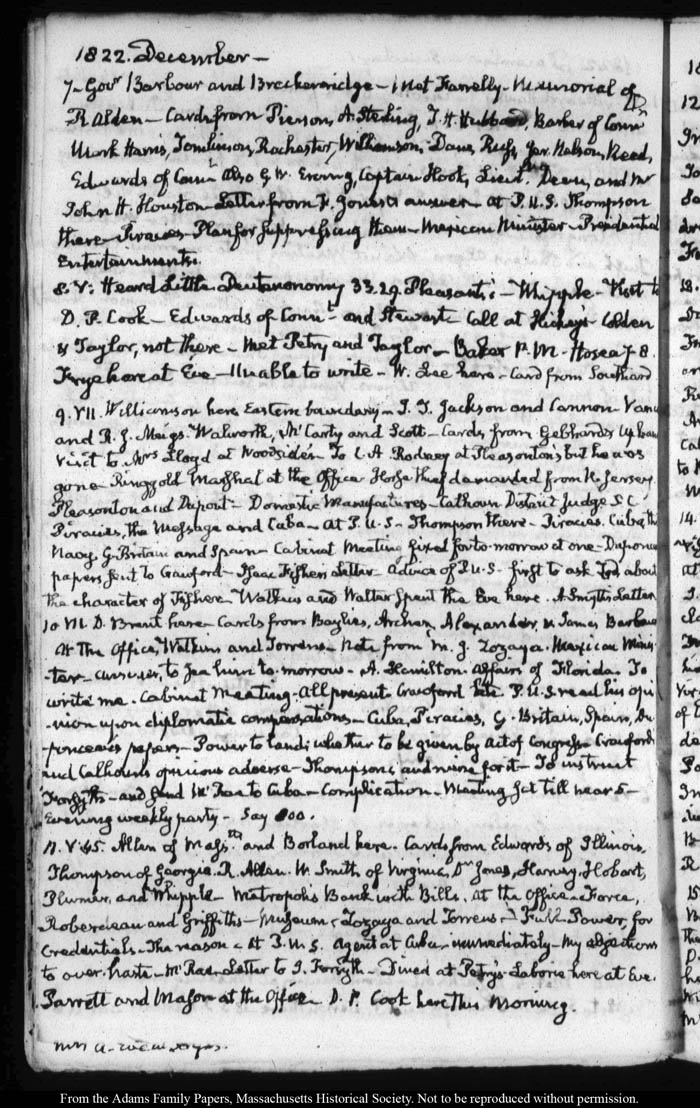 1822. December —
7. Govr. Barbour and Breckenridge — met Farrelly — Memorial of
R Alden — Cards from Pierson, A. Sterling, J. H. Hubbard, Barber of Connt.
Mark Harris, Tomlinson, Rochester, Williamson, Dane, Ruggs, Jer. Nelson, Reed,
Edwards of Connt. also G. W. Erving, Captain Hook, Lieut. Dean, and Mr
John H. Houston. Letter from F. Jones answer — at P.U.S. Thompson
there — Piracies — Plan for suppressing them — Mexican Minister — Presidential
Entertainments.
8. V: Heard Little Deuteronomy 33.29. Pleasants — Whipple — Visit to
D. P. Cook — Edwards of Connt. and Stewart. Call at Hickey's Colden
& Taylor, not there — met Petry and Taylor — Baker P.M. Hosea 7.8.
Frye here at Eve — Unable to write — W. Lee here — Card from Southard
9. VII. Williamson here Eastern boundary — J. J. Jackson and Cannon
and R. J. Meigs. Walworth, McCarty and Scott — Cards from Gebhard &
Visit to Mrs Lloyd at Woodside's To C A Rodney at Pleasonton's but he was
gone Ringgold Marshal at the Office Horse thief demanded from N. Jersey.
Pleasonton and Dupont — Domestic Manufactures — Calhoun District Judge S.C.
Piracies, the Message and Cuba — at P.U.S — Thompson there — Piracies. Cuba, the
Navy. G. Britain and Spain — Cabinet Meeting fixed for to-morrow at one — Duponceau
papers sent to Crawford — Isaac Fisher's Letter — advice of P.U.S. first to ask about
the character of Fisher — Watkins and Walter spent the Eve here. A. Smyth's Letter
10 VI. D. Brent here — Cards from Baylies, Archer, Alexander, & James Barbour
At the Office, Watkins and Torrens — Note from M. J. Zozaya. Mexican Minis-
-ter — answer, to see him to-morrow — A. Hamilton affairs of Florida. To
write me. Cabinet Meeting. All present Crawford late. P.U.S. read his opi
-nion upon diplomatic compensations — Cuba, Piracies, G. Britain, Spain, Du
-ponceau's papers — Power to land; whether to be given by Act of Congress — Crawford
and Calhoun's opinions adverse — Thompson's, and mine for it — To instruct
Forsyth — and send McRae to Cuba — Complication. Meeting sat till near 5 —
Evening weekly party — Say 100.
11. V.45. Allen of Massts. and Borland here. Cards from Edwards of Illinois,
Thompson of Georgia. R. Allen. W. Smith of Virginia, Dr Jones, Harvey, Hobart,
Plumer, and Whipple — Metropolis Bank with Bills. At the Office — Force,
Roberdeau and Griffiths — Museum — Zozaya and Torrens — Full Power, for
Credentials. The reason — At P.U.S. Agent at Cuba — immediately — My objections
to over haste — McRae. Letter to J. Forsyth — Dined at Petry's — Laborie here at Eve.
Parrott and Mason at the Office — D. P. Cook here this Morning.
From the Adams Family Papers, Massachusetts Historical Society. Not to be reproduced without permission.